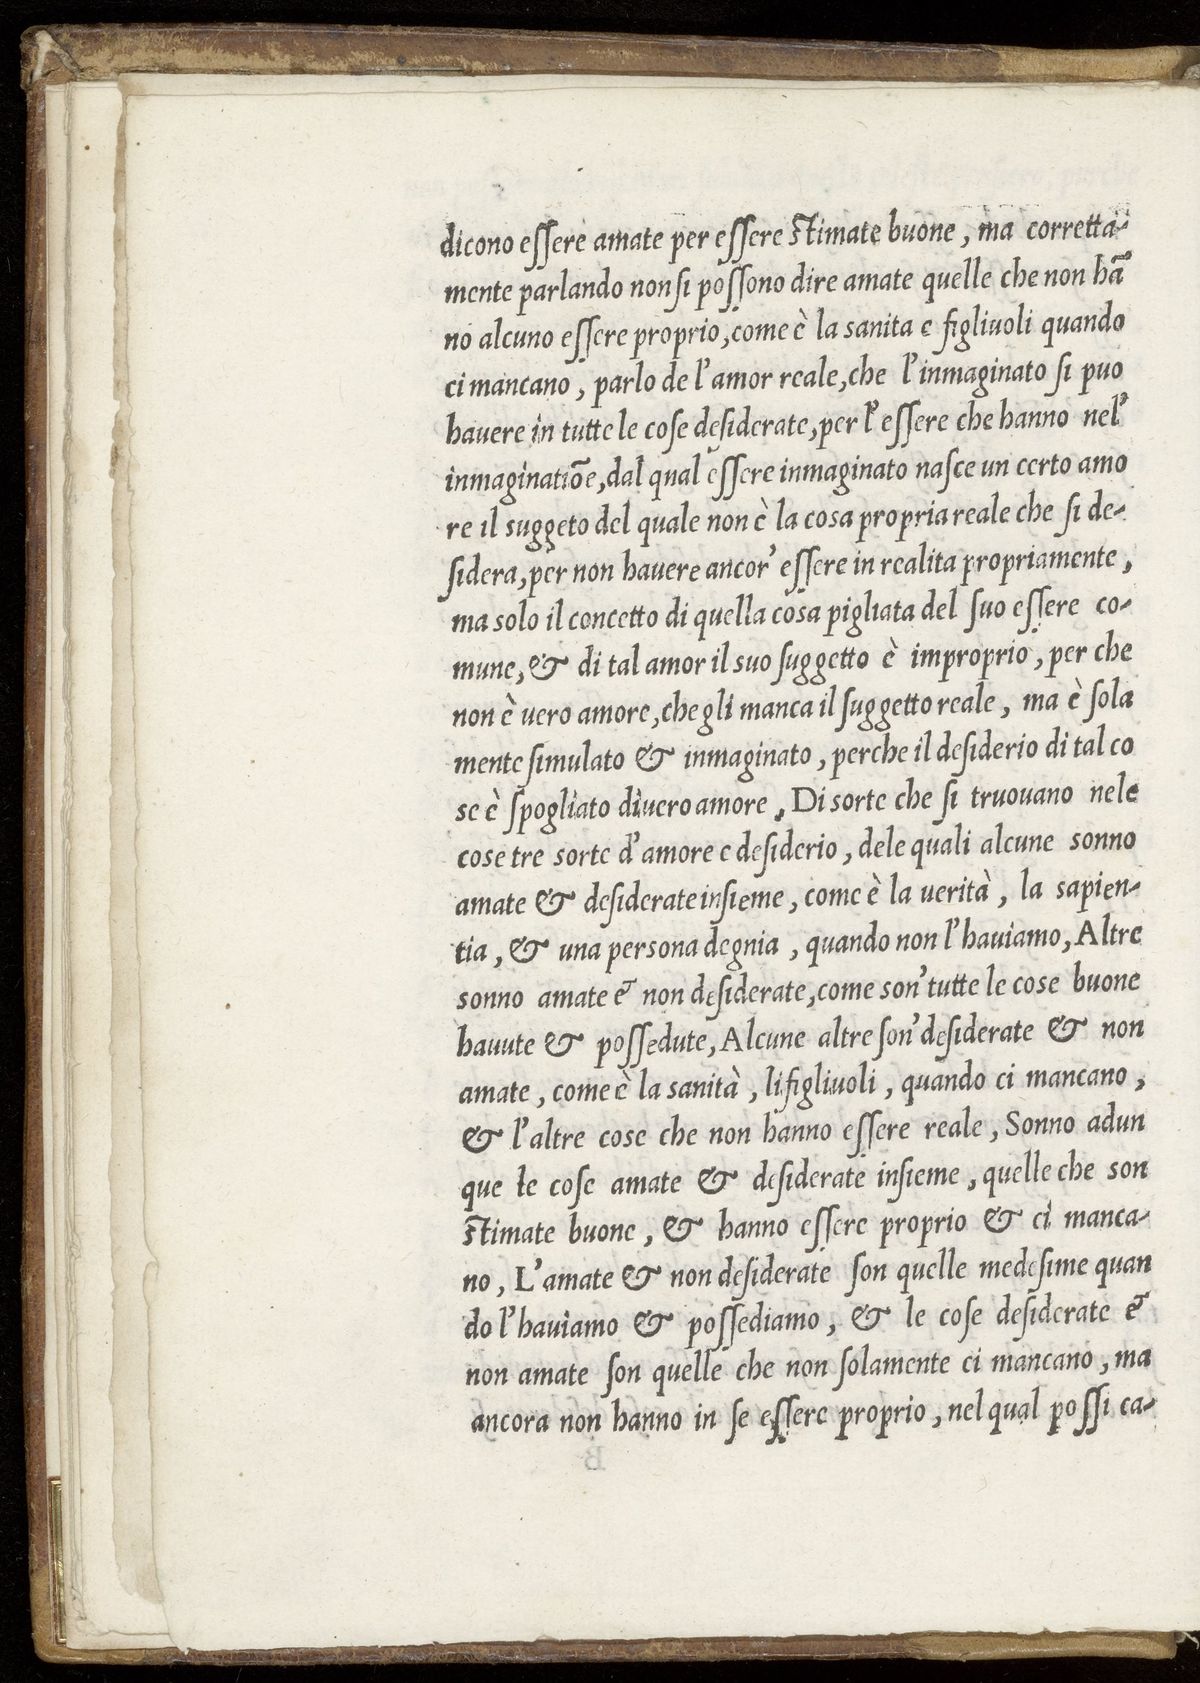 dicono eſſere amate per eſſere ſtimate buone, ma corretta-
mente parlando non ſi poſſono dire amate quelle che non hā
no alcuno eſſere proprio, come è la sanita e figliuoli quando
ci mancano, parlo de l'amor reale, che l'inmaginato ſi puo
hauere in tutte le coſe deſiderate, per l'eſſere che hanno nel'
inmaginatiōe, dal qual eſſere inmaginato naſce un certo amo
re il suggeto del quale non è la cosa propria reale che ſi de-
ſidera, per non hauere ancor' eſſere in realita propriamente,
ma solo il concetto di quella cosa pigliata del ſuo eſſere co-
mune, & di tal amor il suo ſuggetto è improprio, per che
non è uero amore, che gli manca il ſuggetto reale, ma è ſola
mente ſimulato & inmaginato, perche il deſiderio di tal co
se è ſpogliato di uero amore. Di sorte che ſi truouano nele
cose tre sorte d'amore e deſiderio, dele quali alcune sonno
amate & deſiderate inſieme, come è la uerità, la sapien-
tia, & una persona degnia, quando non l'hauiamo, Altre
sonno amate & non deſiderate, come son' tutte le cose buone
hauute & poſſedute, Alcune altre ſon' deſiderate & non
amate, come è la sanità, li figliuoli, quando ci mancano,
& l'altre cose che non hanno eſſere reale, Sonno adun
que le coſe amate & deſiderate inſieme, quelle che son
ſtimate buone, & hanno eſſere proprio & ci manca-
no, L'amate & non deſiderate ſon quelle medeſime quan
do l'hauiamo & poſſediamo, & le coſe deſiderate &
non amate ſon quelle che non ſolamente ci mancano, ma
ancora non hanno in ſe eſſere proprio, nel qual poſſi ca-